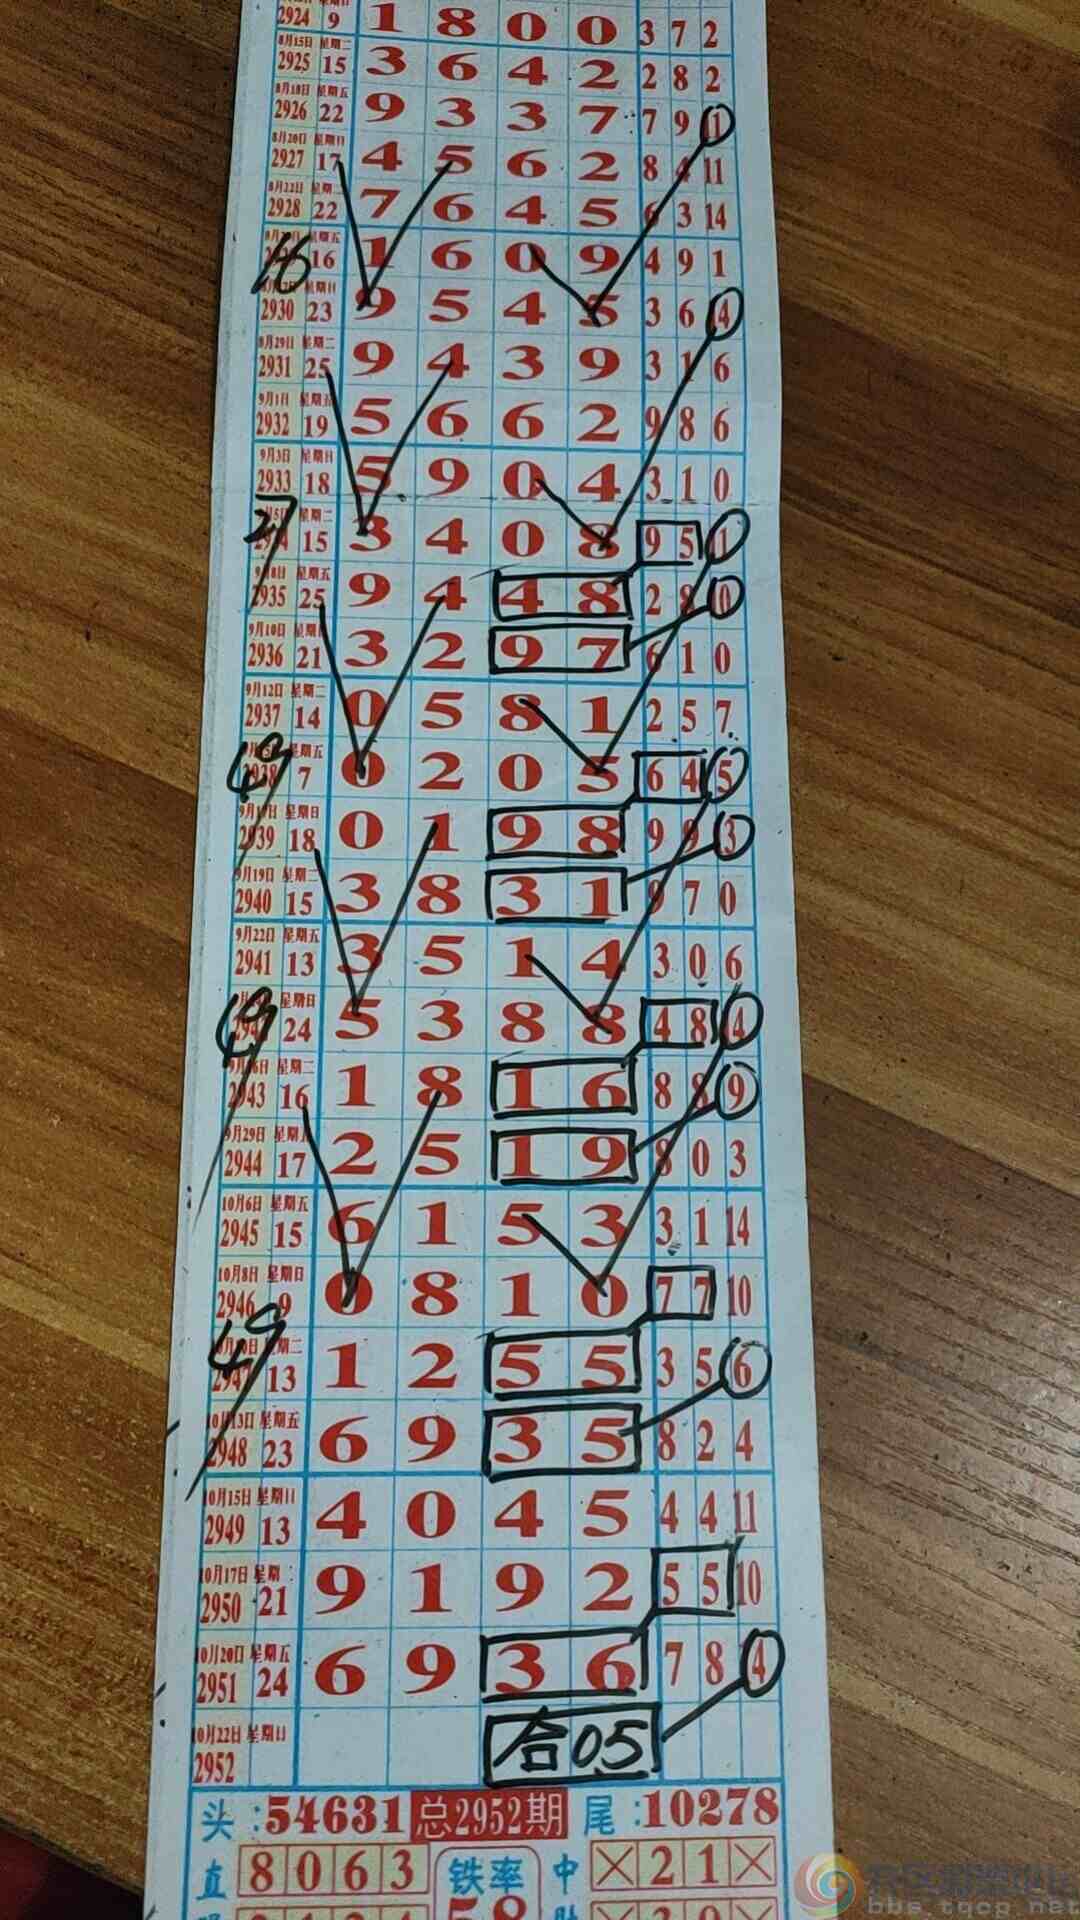 2924 9 1 8 0 0 3 7 2
8月15日 星期二
2925 15 3 6 4 2 2 8 2
8月18日 星期五
2926 22 9 3 3 7 7 9 11
8月20日 星期日
2927 17 4 5 6 2 8 4 11
8月22日 星期二
2928 22 7 6 4 5 6 3 14
星期五
16 16 1 6 0 9 4 9 1
星期日
2930 23 9 5 4 5 3 6 4
8月29日 星期二
2931 25 9 4 3 9 3 1 6
9月1日 星期五
2932 19 5 6 6 2 9 8 6
9月3日 星期日
2933 18 5 9 0 4 3 1 0
27 星期二
15 3 4 0 8 9 5 11
9月8日 星期五
2935 25 9 4 4 8 2 8 10
9月10日 星期日
2936 21 3 2 9 7 6 1 0
9月12日 星期二
2937 14 0 5 8 1 2 5 7
49 星期五
2938 7 0 2 0 5 6 4 5
星期日
2939 18 0 1 9 8 9 9 3
9月19日 星期二
2940 15 3 8 3 1 9 7 0
9月22日 星期五
2941 13 3 5 1 4 3 0 6
49 星期日
24 5 3 8 8 4 8 4
星期二
2943 16 1 8 1 6 8 8 9
9月29日 星期五
2944 17 2 5 1 9 8 0 3
10月6日 星期五
2945 15 6 1 5 3 3 1 14
10月8日 星期日
2946 9 0 8 1 0 7 7 10
49 星期二
2947 13 1 2 5 5 3 5 6
10月13日 星期五
2948 23 6 9 3 5 8 2 4
10月15日 星期日
2949 13 4 0 4 5 4 4 11
10月17日 星期二
2950 21 9 1 9 2 5 5 10
10月20日 星期五
2951 24 6 9 3 6 7 8 4
10月22日 星期日
2952 合05
头:54631 总2952期 尾:10278
直 8 0 6 3 铁率 中 × 2 1 ×
58
bbs.tqcp.net